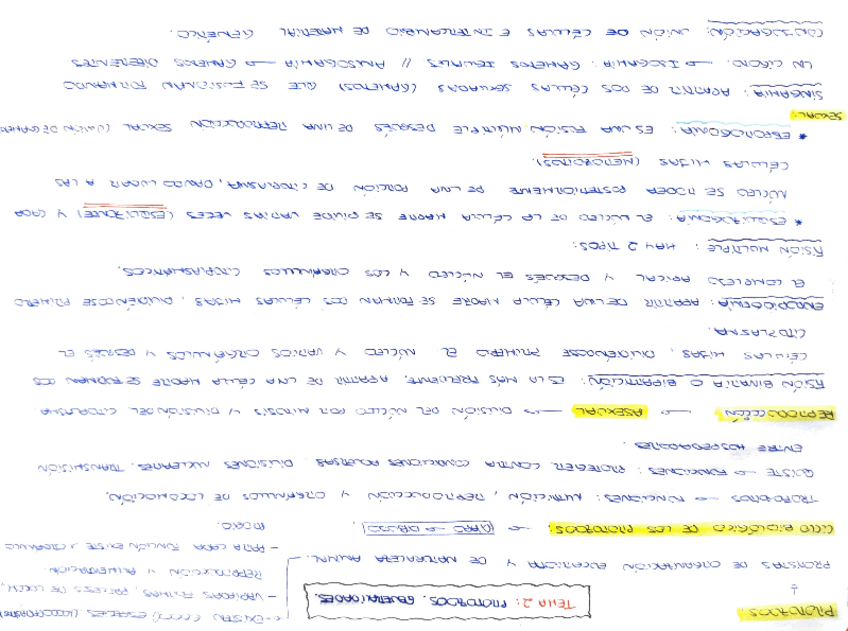 TEMA 2: PROTOZOOS. GENERALIDADES.
PROTOZOOS
↓
PROTISTAS DE ORGANIZACIÓN EUCARIOTA Y DE NATURALEZA ANIMAL.
- EXISTEN ESPECIES
- VARIADAS FORMAS, PROCESOS DE LOCOM,
REPRODUCCIÓN Y ALIMENTACIÓN.
- PARA CADA FUNCIÓN EXISTE 1 ORGÁNULO
CICLO BIOLÓGICO DE LOS PROTOZOOS: → DIBUJO
TROFOZOITOS → FUNCIONES: NUTRICIÓN, REPRODUCCIÓN Y ORGÁNULOS DE LOCOMOCIÓN.
QUISTE → FUNCIONES: PROTEGER CONTRA CONDICIONES ADVERSAS. DIVISIONES NUCLEARES. TRANSMISIÓN
ENTRE HOSPEDADORES.
REPRODUCCIÓN → ASEXUAL → DIVISIÓN DEL NÚCLEO POR MITOSIS Y DIVISIÓN DEL CITOPLASMA
FISIÓN BINARIA O BIPARTICIÓN: ES LA MÁS FRECUENTE, A PARTIR DE UNA CÉLULA MADRE SE FORMAN DOS
CÉLULAS HIJAS, DIVIDIÉNDOSE PRIMERO EL NÚCLEO Y VARIOS ORGÁNULOS Y DESPUÉS EL
CITOPLASMA.
ENDODIOGENIA: A PARTIR DE UNA CÉLULA MADRE SE FORMAN DOS CÉLULAS HIJAS, DIVIDIÉNDOSE PRIMERO
EL COMPLEJO APICAL Y DESPUÉS EL NÚCLEO Y LOS ORGÁNULOS CITOPLASMÁTICOS.
FISIÓN MÚLTIPLE: HAY 2 TIPOS:
* ESQUIZOGONIA: EL NÚCLEO DE LA CÉLULA MADRE SE DIVIDE VARIAS VECES (ESQUIZONTE) Y CADA
NÚCLEO SE RODEA POSTERIORMENTE DE UNA PORCIÓN DE CITOPLASMA, DANDO LUGAR A LAS
CÉLULAS HIJAS (MEROZOITOS).
* ESPOROGONIA: ES UNA FISIÓN MÚLTIPLE DESPUÉS DE UNA REPRODUCCIÓN SEXUAL (UNIÓN DE GAMETOS
SEXUAL:
SINGAMIA: A PARTIR DE DOS CÉLULAS SEXUADAS (GAMETOS) QUE SE FUSIONAN FORMANDO
UN CIGOTO. → ISOGAMIA: GAMETOS IGUALES // ANISOGAMIA → GAMETOS DIFERENTES
CONJUGACIÓN: UNIÓN DE CÉLULAS E INTERCAMBIO DE MATERIAL GENÉTICO.